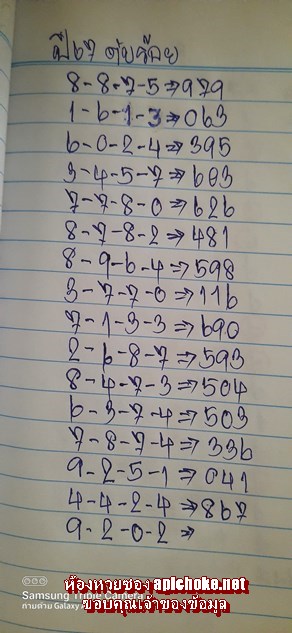 ปี67 ตัวร้อย
8-8-7-5⇒979
1-6-1-3⇒063
6-0-2-4⇒395
3-4-5-7⇒603
7-7-8-0⇒626
8-7-8-2⇒481
8-9-6-4⇒598
3-7-7-0⇒116
7-1-3-3⇒690
2-6-8-7⇒593
8-4-7-3⇒504
6-3-7-4⇒503
7-8-7-4⇒336
9-2-5-1⇒041
4-4-2-4⇒867
9-2-0-2⇒
ห้องหวยซอง apichoke.net
Samsung Triple Camera
ขอบคุณเจ้าของข้อมูล
ถ่ายด้วย Galaxy